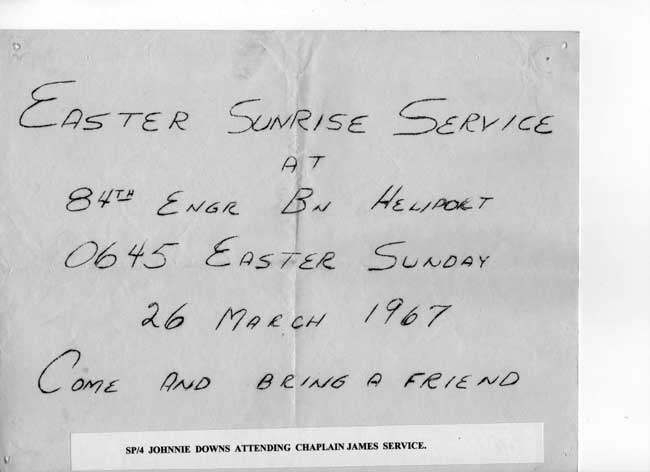 EASTER SUNRISE SERVICE
AT
84TH ENGR BN HELIPORT
0645 EASTER SUNDAY
26 MARCH 1967
COME AND BRING A FRIEND
SP/4 JOHNNIE DOWNS ATTENDING CHAPLAIN JAMES SERVICE.